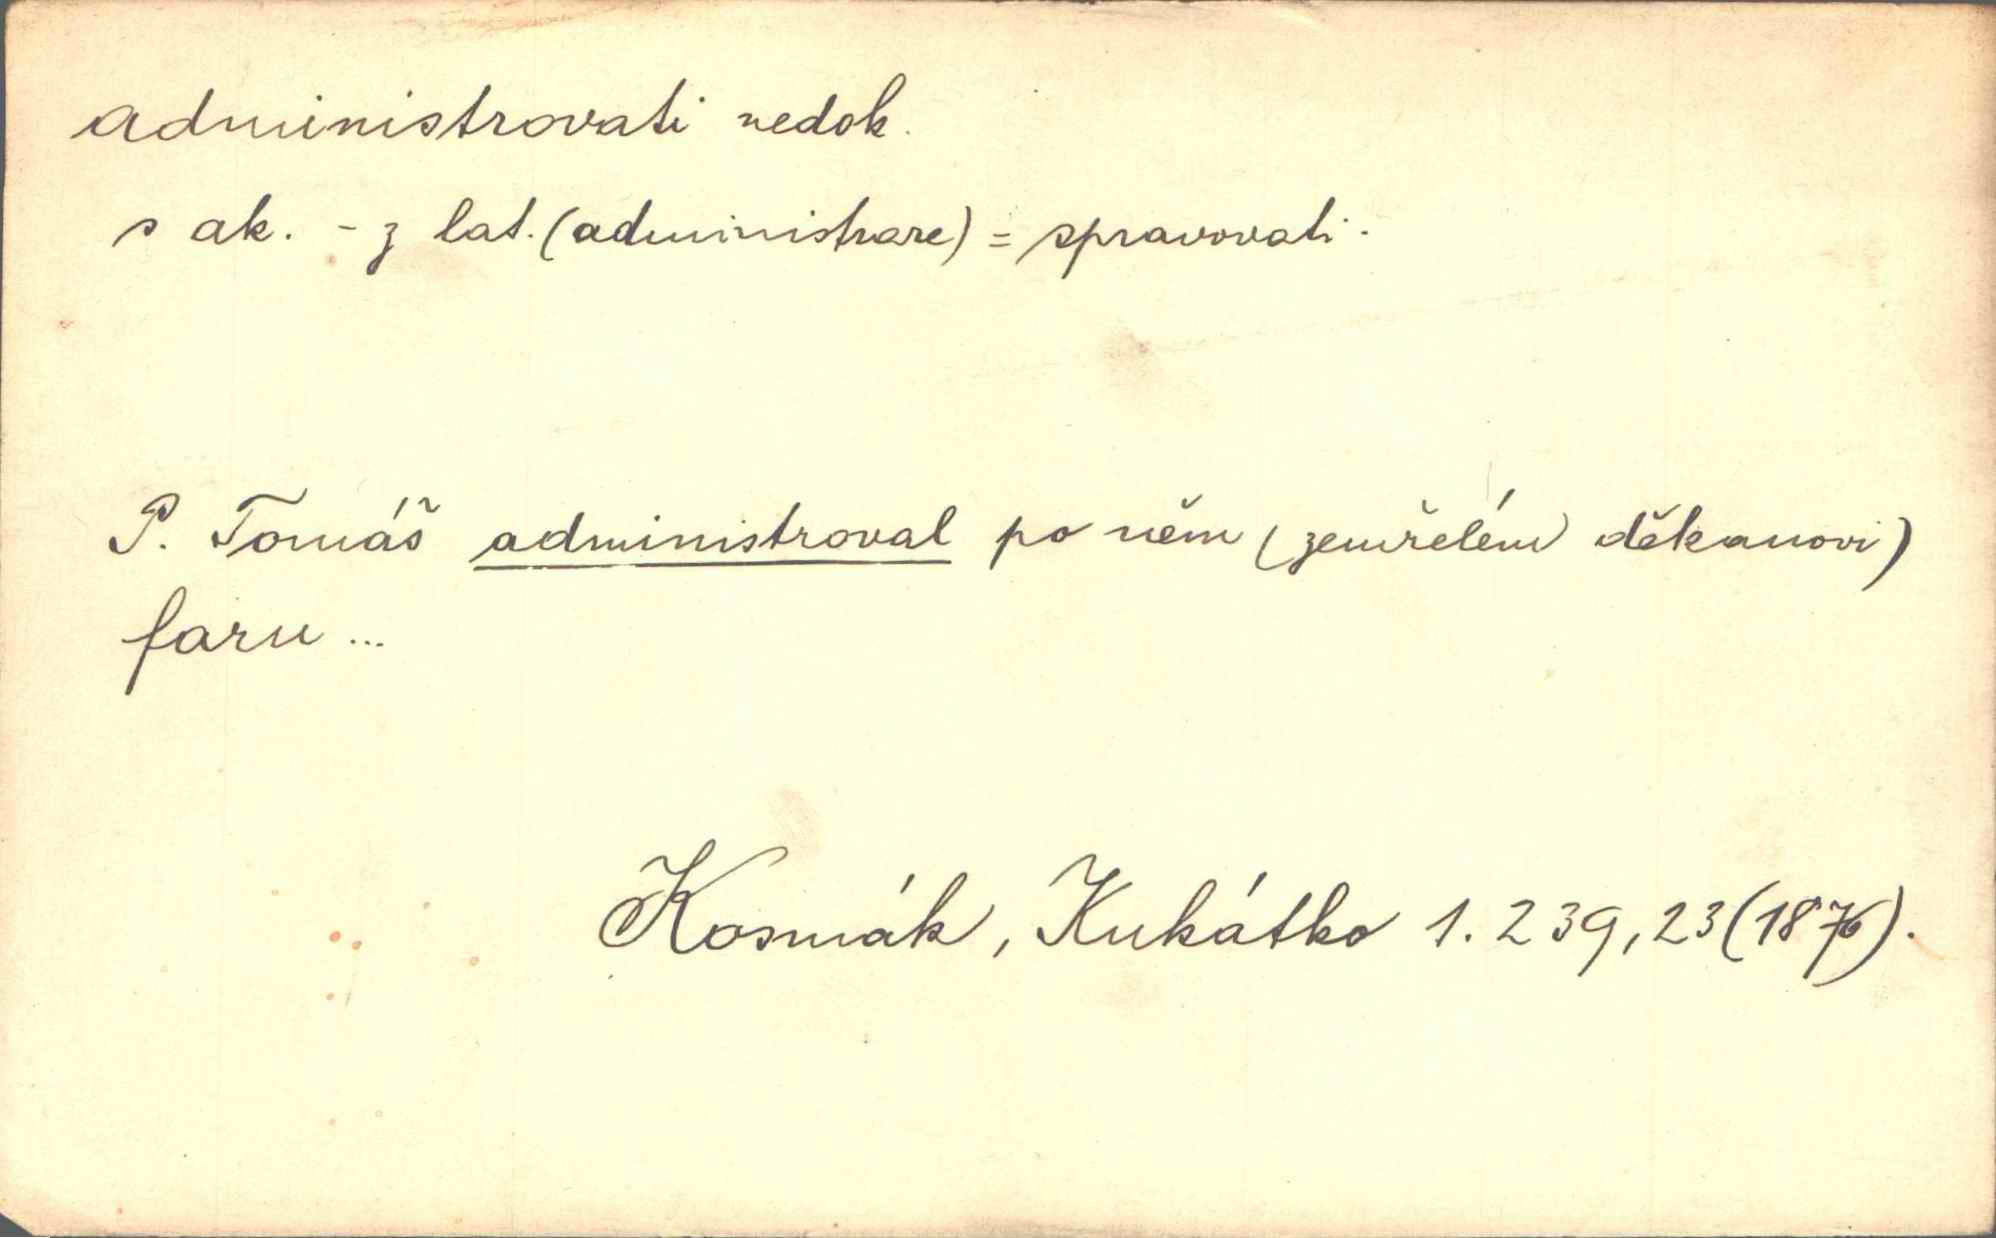 administrovati nedok.
s ak. - z lat. (administrare) = spravovati.
P. Tomáš administroval po něm (zemřelém děkanovi)
faru ...
Kosmák, Kukátko 1. 239, 23 (1876).